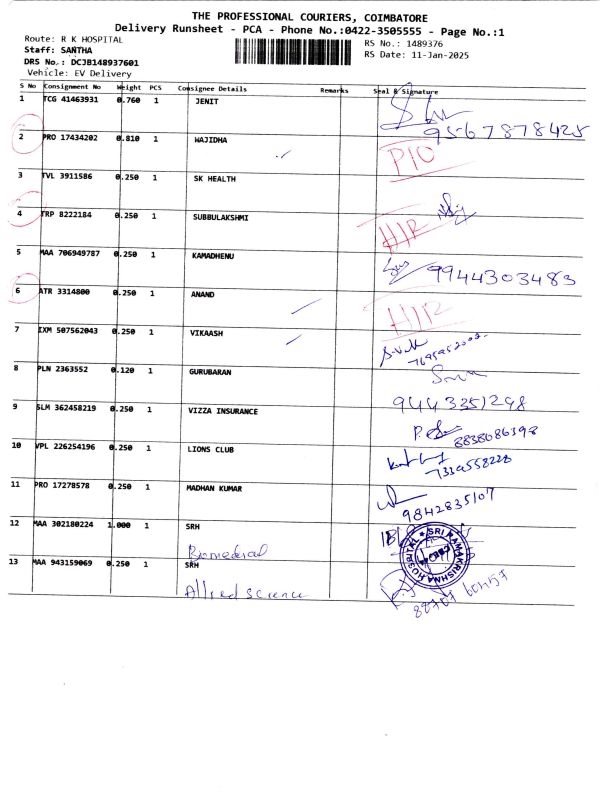 THE PROFESSIONAL COURIERS, COIMBATORE
Delivery Runsheet - PCA - Phone No.:0422-3505555 - Page No.:1
Route: R K HOSPITAL
RS No.: 1489376
Staff: SANTHA
RS Date: 11-Jan-2025
DRS No.: DCJB148937601
Vehicle: EV Delivery
S No Consignment No Weight PCS Consignee Details Remarks Seal & Signature
1 TCG 41463931 0.760 1 JENIT
9567878425
2 PRO 17434202 0.810 1 WAJIDHA
P10
3 TVL 3911586 0.250 1 SK HEALTH
4 TRP 8222184 0.250 1 SUBBULAKSHMI
H1R
5 MAA 706949787 0.250 1 KAMADHENU
9944303483
6 ATR 3314800 0.250 1 ANAND
H1R
7 IXM 507562043 0.250 1 VIKAASH
8 PLN 2363552 0.120 1 GURUBARAN
9 SLM 362458219 0.250 1 VIZZA INSURANCE
9443351298
8838086398
10 VPL 226254196 0.250 1 LIONS CLUB
7339558228
11 PRO 17278578 0.250 1 MADHAN KUMAR
9842835107
12 MAA 302180224 1.000 1 SRH
Biomedical
SRI RAMAKRISHNA HOSPITAL
13 MAA 943159069 0.250 1 SRH
Allied science
88707 60457